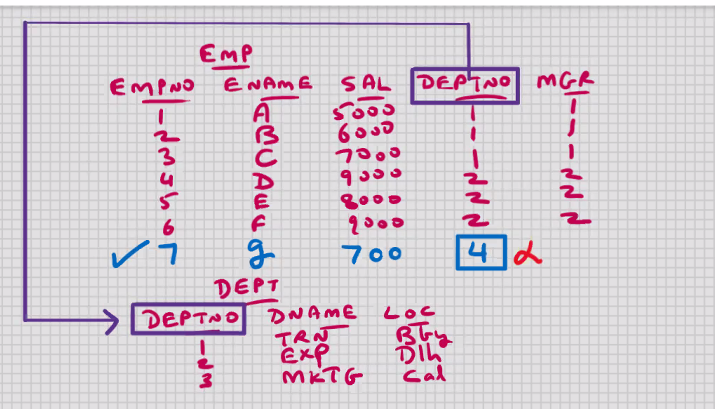 EMP
EMPNO ENAME SAL DEPTNO MGR
1 A 5000 1 1
2 B 6000 1 1
3 C 7000 1 1
4 D 9000 2 2
5 E 8000 2 2
6 F 9000 2 2
7 g 700 4
DEPT
DEPTNO DNAME LOC
1 TRN Bby
2 EXP Dlh
3 MKTG Cal